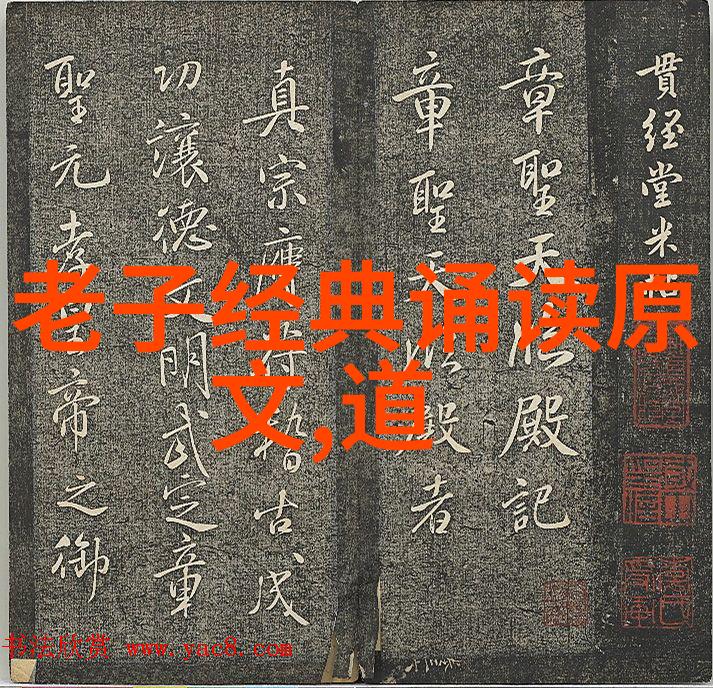 老子经典诵读原
文,道
貫經堂米
章聖天臨殿記
章聖天臨殿者
真宗膺符稽古成
功讓德文明武定章
聖元孝皇帝之御
书法欣赏 www.yac8.com